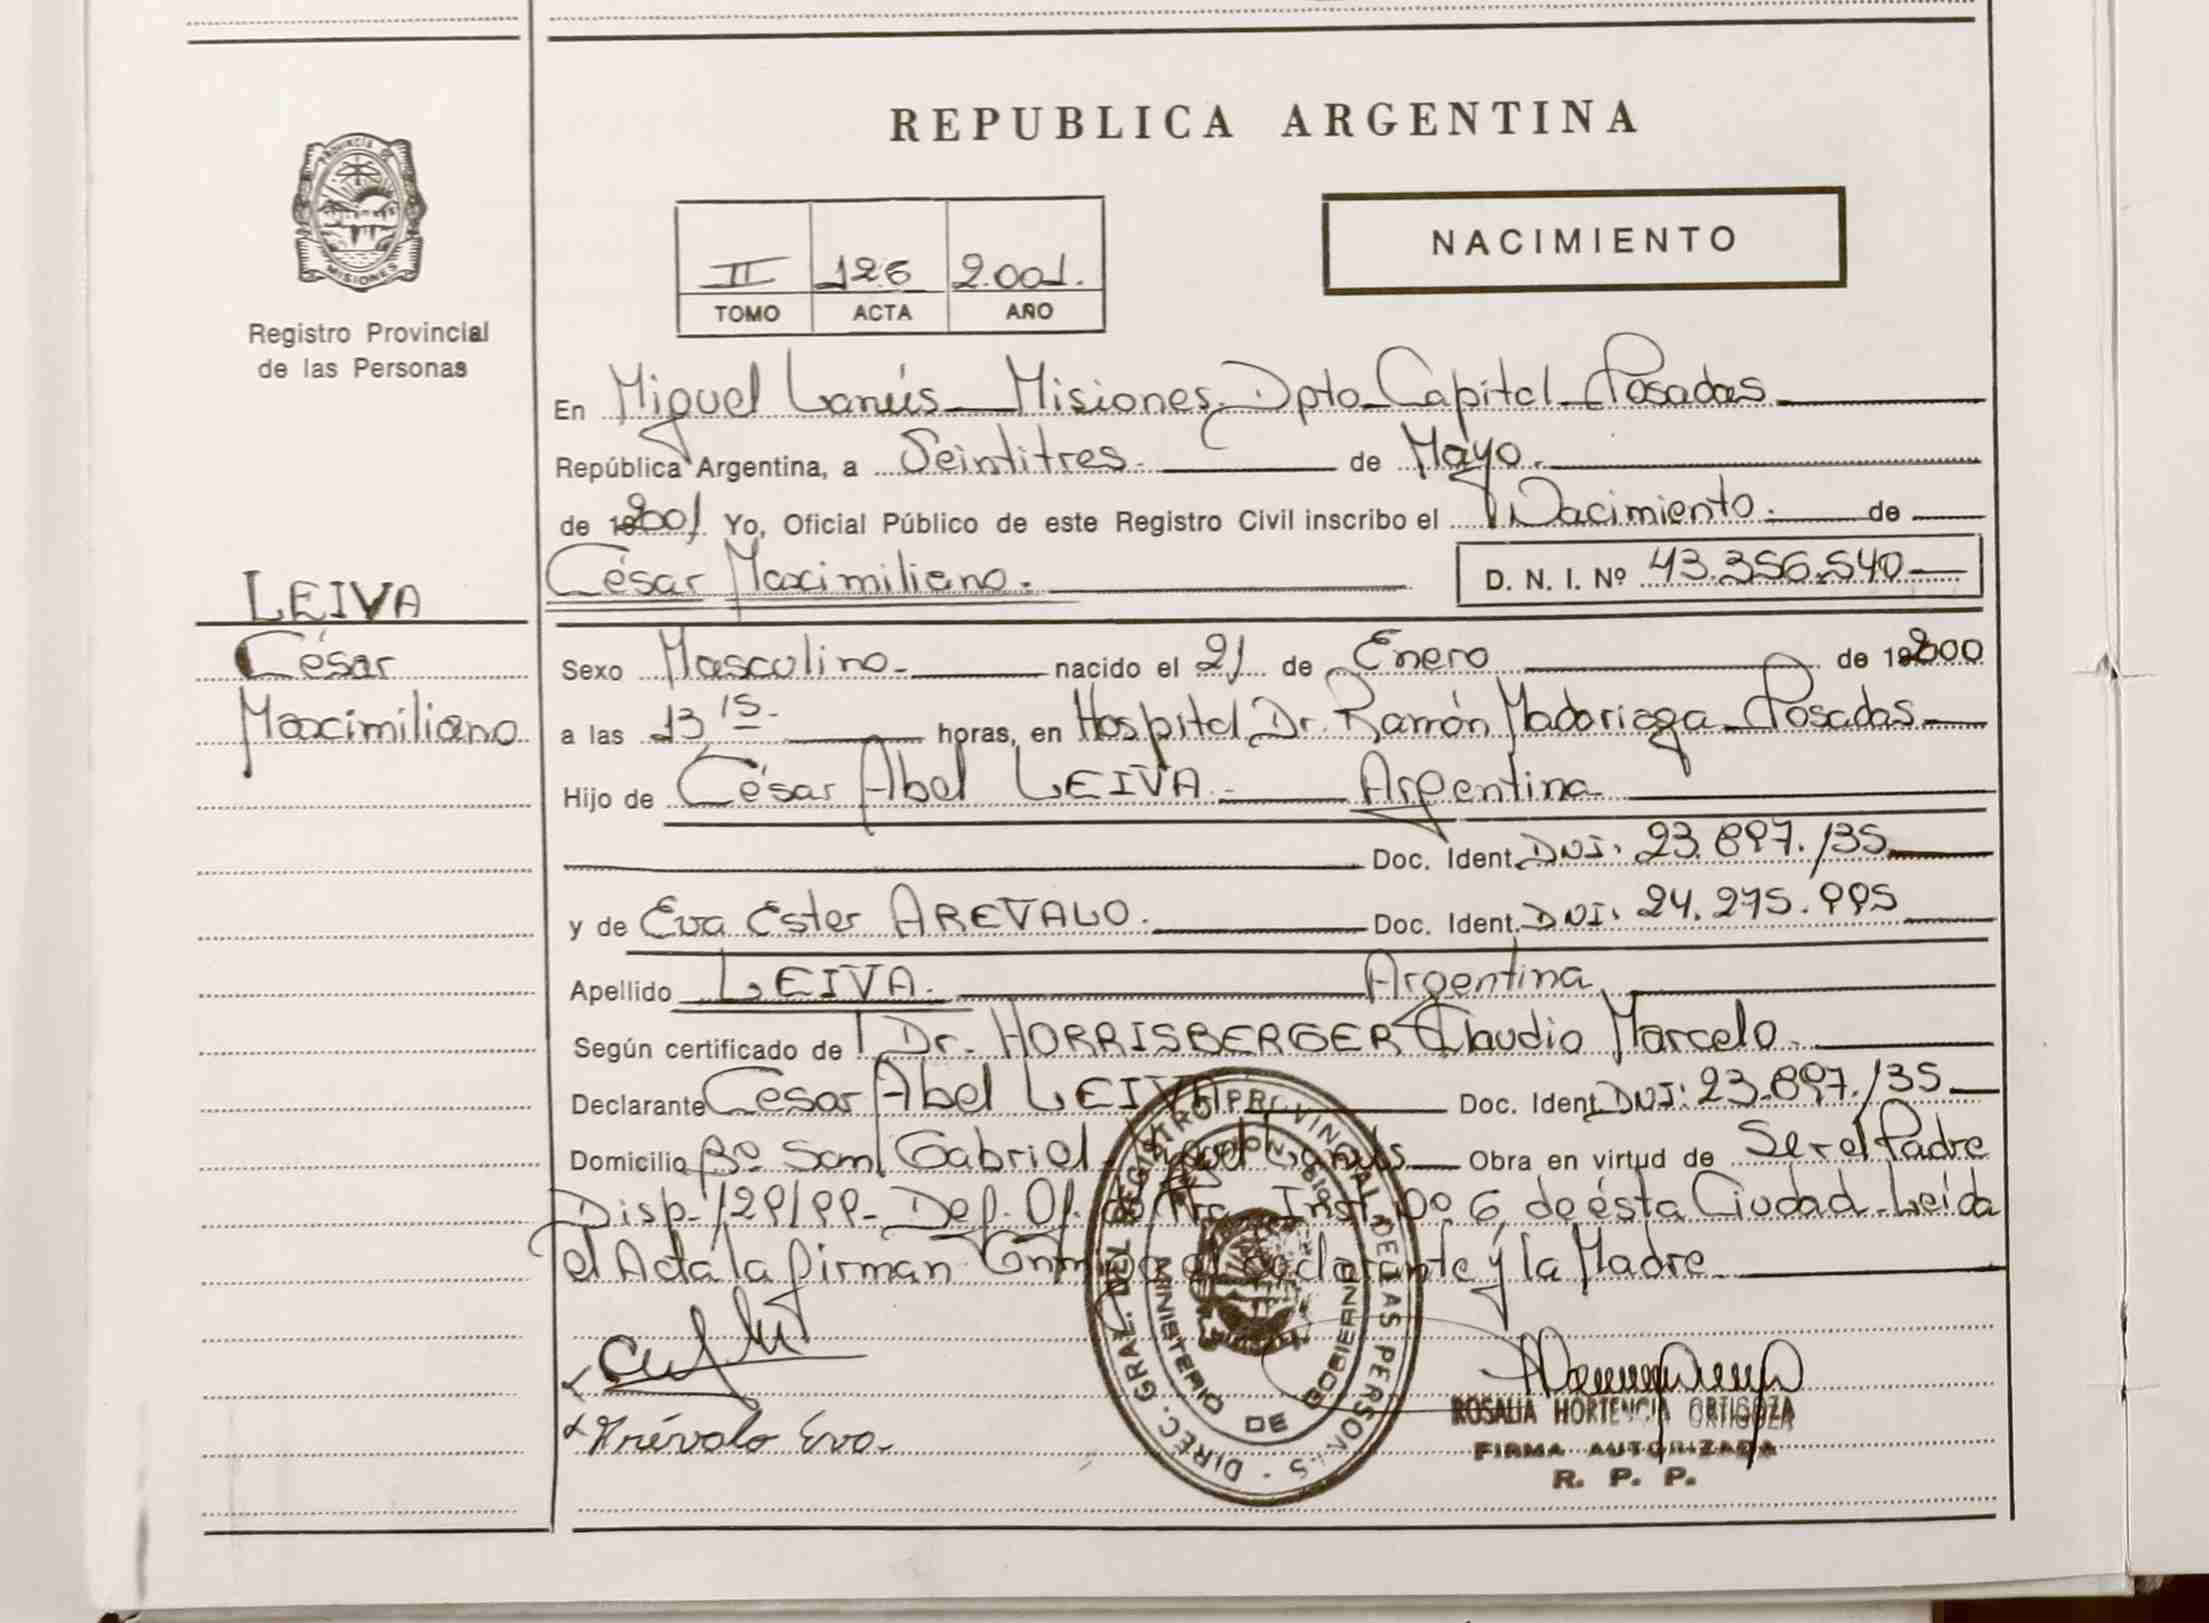 REPUBLICA ARGENTINA
PROVINCIA DE
MISIONES
Registro Provincial
de las Personas
NACIMIENTO
II 126 2.001.
TOMO ACTA AÑO
En Miguel Lanús - Misiones, Dpto Capital - Posadas
República Argentina, a Veintitres de Mayo.
de 2001 Yo, Oficial Público de este Registro Civil inscribo el Nacimiento. de
César Maximiliano.
D. N. I. Nº 43.356.540
LEIVA
César
Maximiliano
Sexo Masculino nacido el 21 de Enero de 2000
a las 13 15 horas, en Hospital Dr. Ramón Madariaga Posadas
Hijo de César Abel LEIVA. Argentina
Doc. Ident. DNI: 23.897.135
y de Eva Ester AREVALO. Doc. Ident. DNI: 24.275.995
Apellido LEIVA. Argentina
Según certificado de Dr. HORRISBERGER Claudio Marcelo.
Declarante César Abel LEIVA Doc. Ident. DNI: 23.897.135
Domicilio Bº San Gabriel Miguel Lanús Obra en virtud de Ser el Padre
Disp. 129/99 - Def. Of. de Inst. Nº 6 de ésta Ciudad - Leída
el Acta la firman Conmigo el declarante y la Madre
Arévalo Eva.
DIREC. GRAL. DEL REGISTRO PROVINCIAL DE LAS PERSONAS
MINISTERIO DE GOBIERNO
ROSALIA HORTENCIA ORTIGOZA
FIRMA AUTORIZADA
R. P. P.